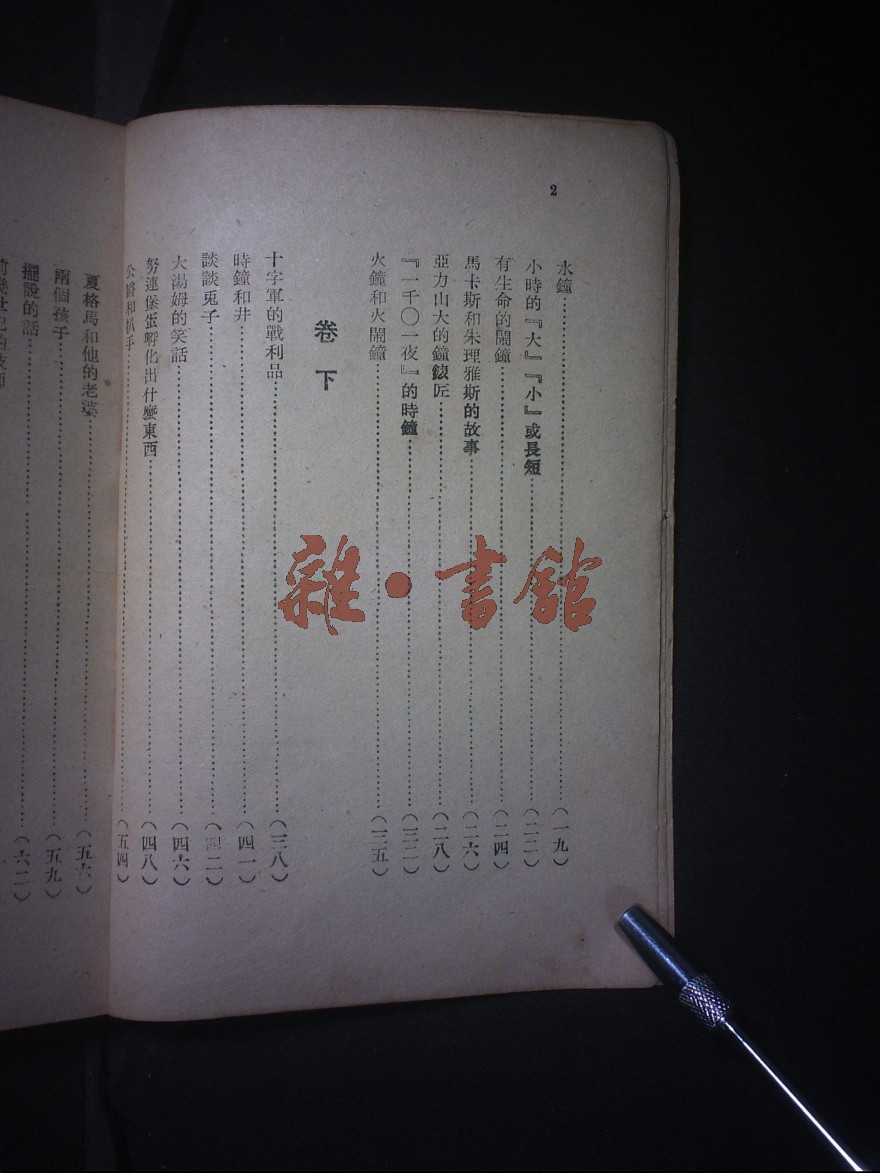 2
水鐘……(一九)
小時的『大』『小』或長短……(二二)
有生命的鬧鐘……(二四)
馬卡斯和朱理雅斯的故事……(二六)
亞力山大的鐘錶匠……(二八)
『一千〇一夜』的時鐘……(三二)
火鐘和火鬧鐘……(三五)
卷下
十字軍的戰利品……(三八)
時鐘和井……(四一)
談談兎子……(四二)
大湯姆的笑話……(四六)
努連堡蛋孵化出什麼東西……(四八)
公爵和扒手……(五四)
夏格馬和他的老婆……(五六)
兩個孩子……(五九)
擺說的話……(六二)
雜·書館